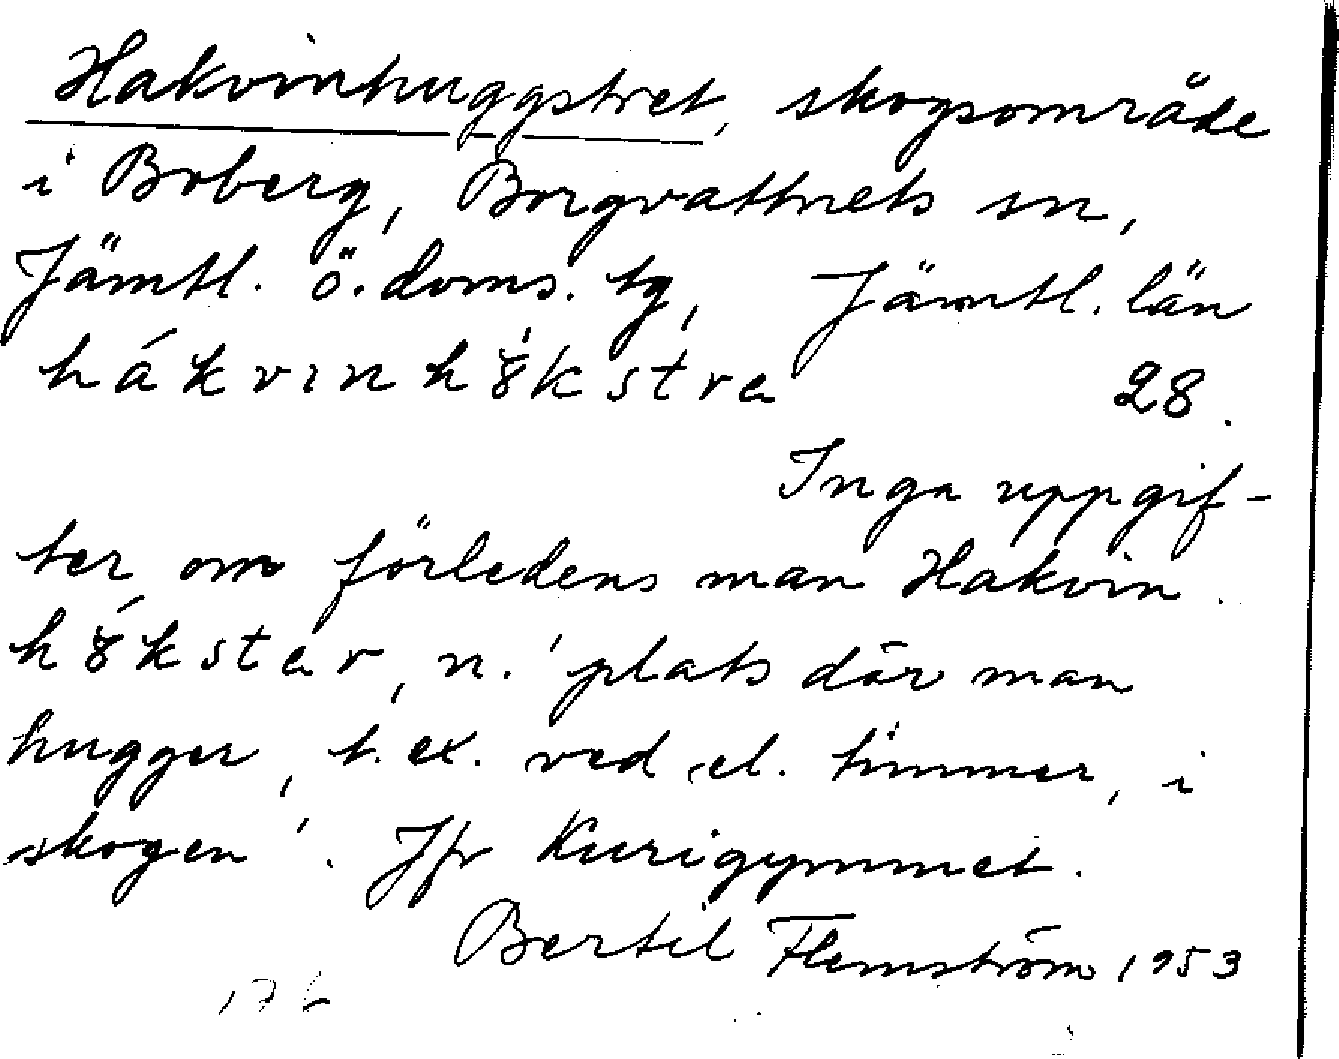 Hakvinhuggstret, skogsområde
i Boberg, Borgvattnets sn,
Jämtl. ö. doms. tg, Jämtl. län
hákvinhặkstra 28.
Inga uppgif-
ter om förledens man Hakvin.
hákstar, n. 'plats där man
hugger, t. ex. ved el. timmer, i
skogen'. Jfr Kurigymmet.
Bertil Flemström 1953